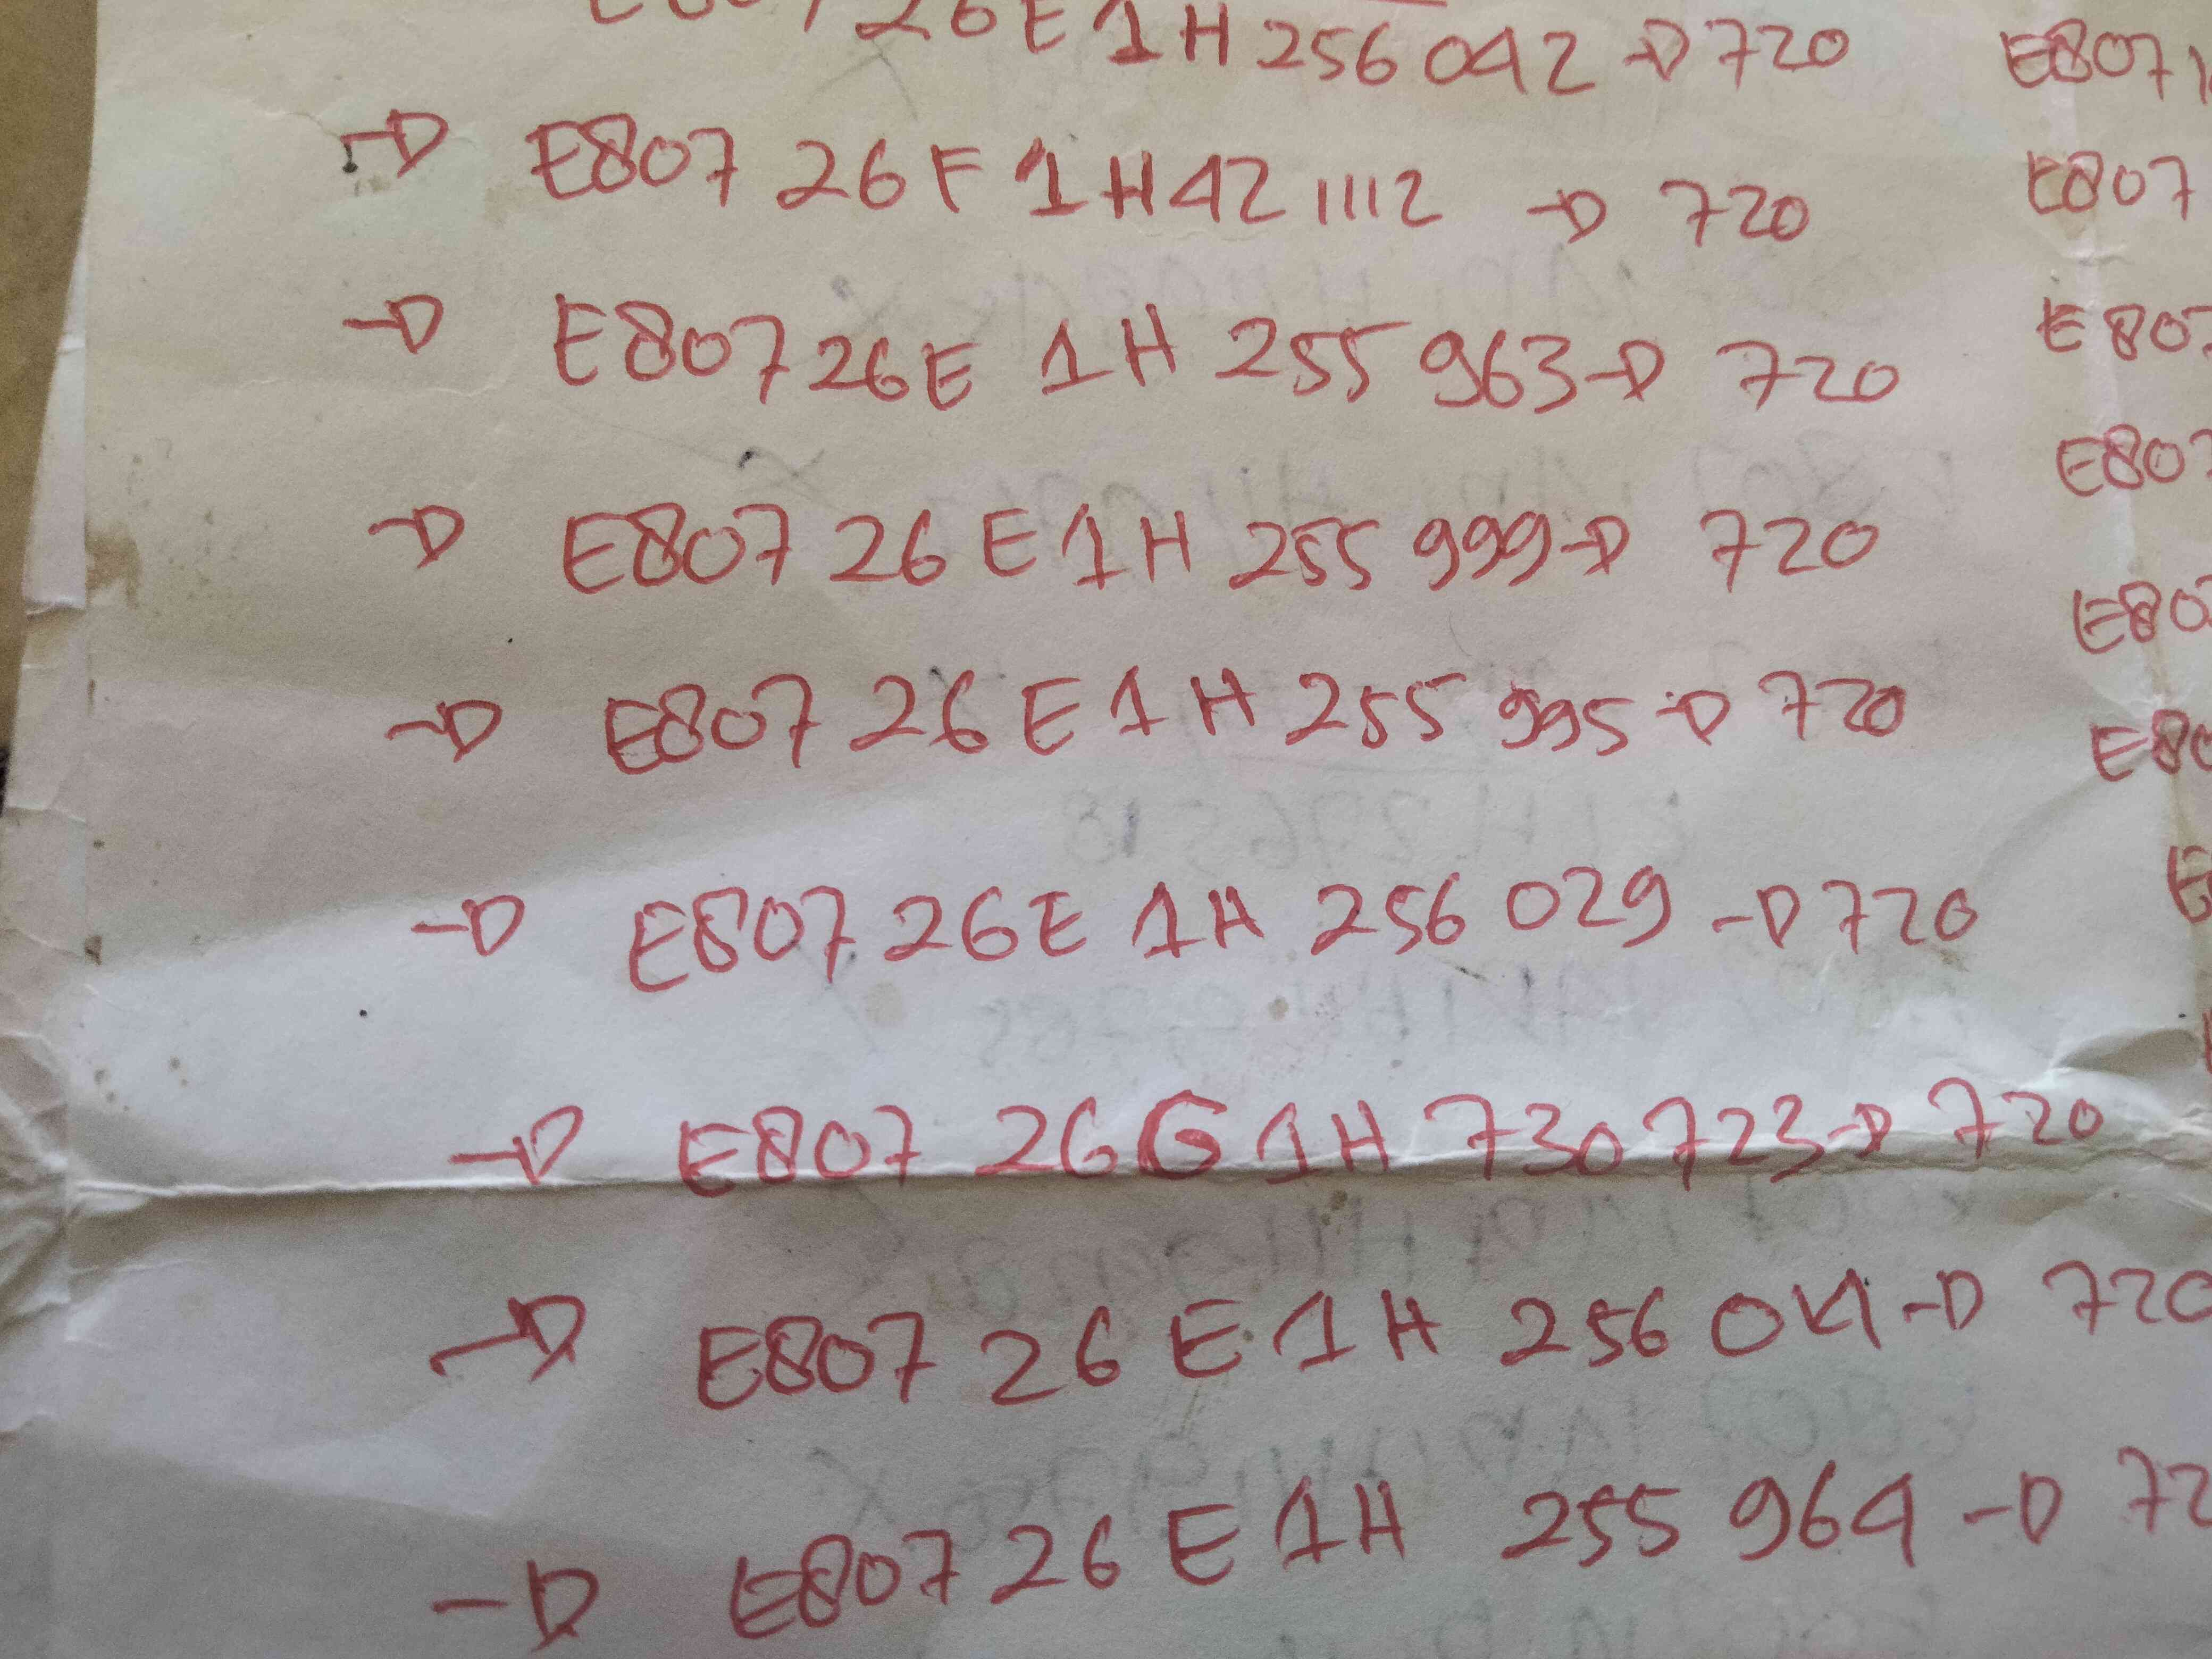 E807 26E 1H 256 042 → 720
→ E807 26 F 1 H 42 1112 → 720
→ E807 26E 1H 255 963 → 720
→ E807 26 E 1H 255 999 → 720
→ E807 26 E 1H 255 995 → 720
→ E807 26E 1H 256 029 → 720
→ E807 26 G 1H 730 723 → 720
→ E807 26 E 1H 256 0 → 720
→ E807 26 E 1H 255 964 → 72
E807
E807
E807
E807
E80
E80
E